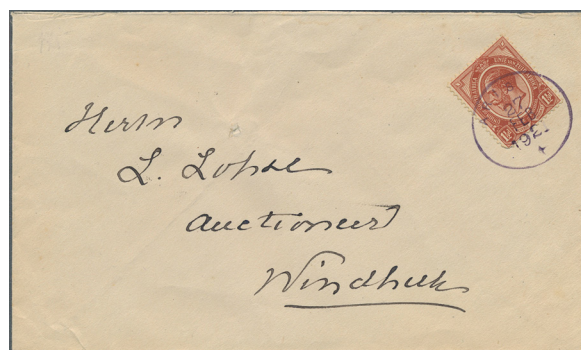 Herrn
L. Lohse
Auctioneer
Windhuk